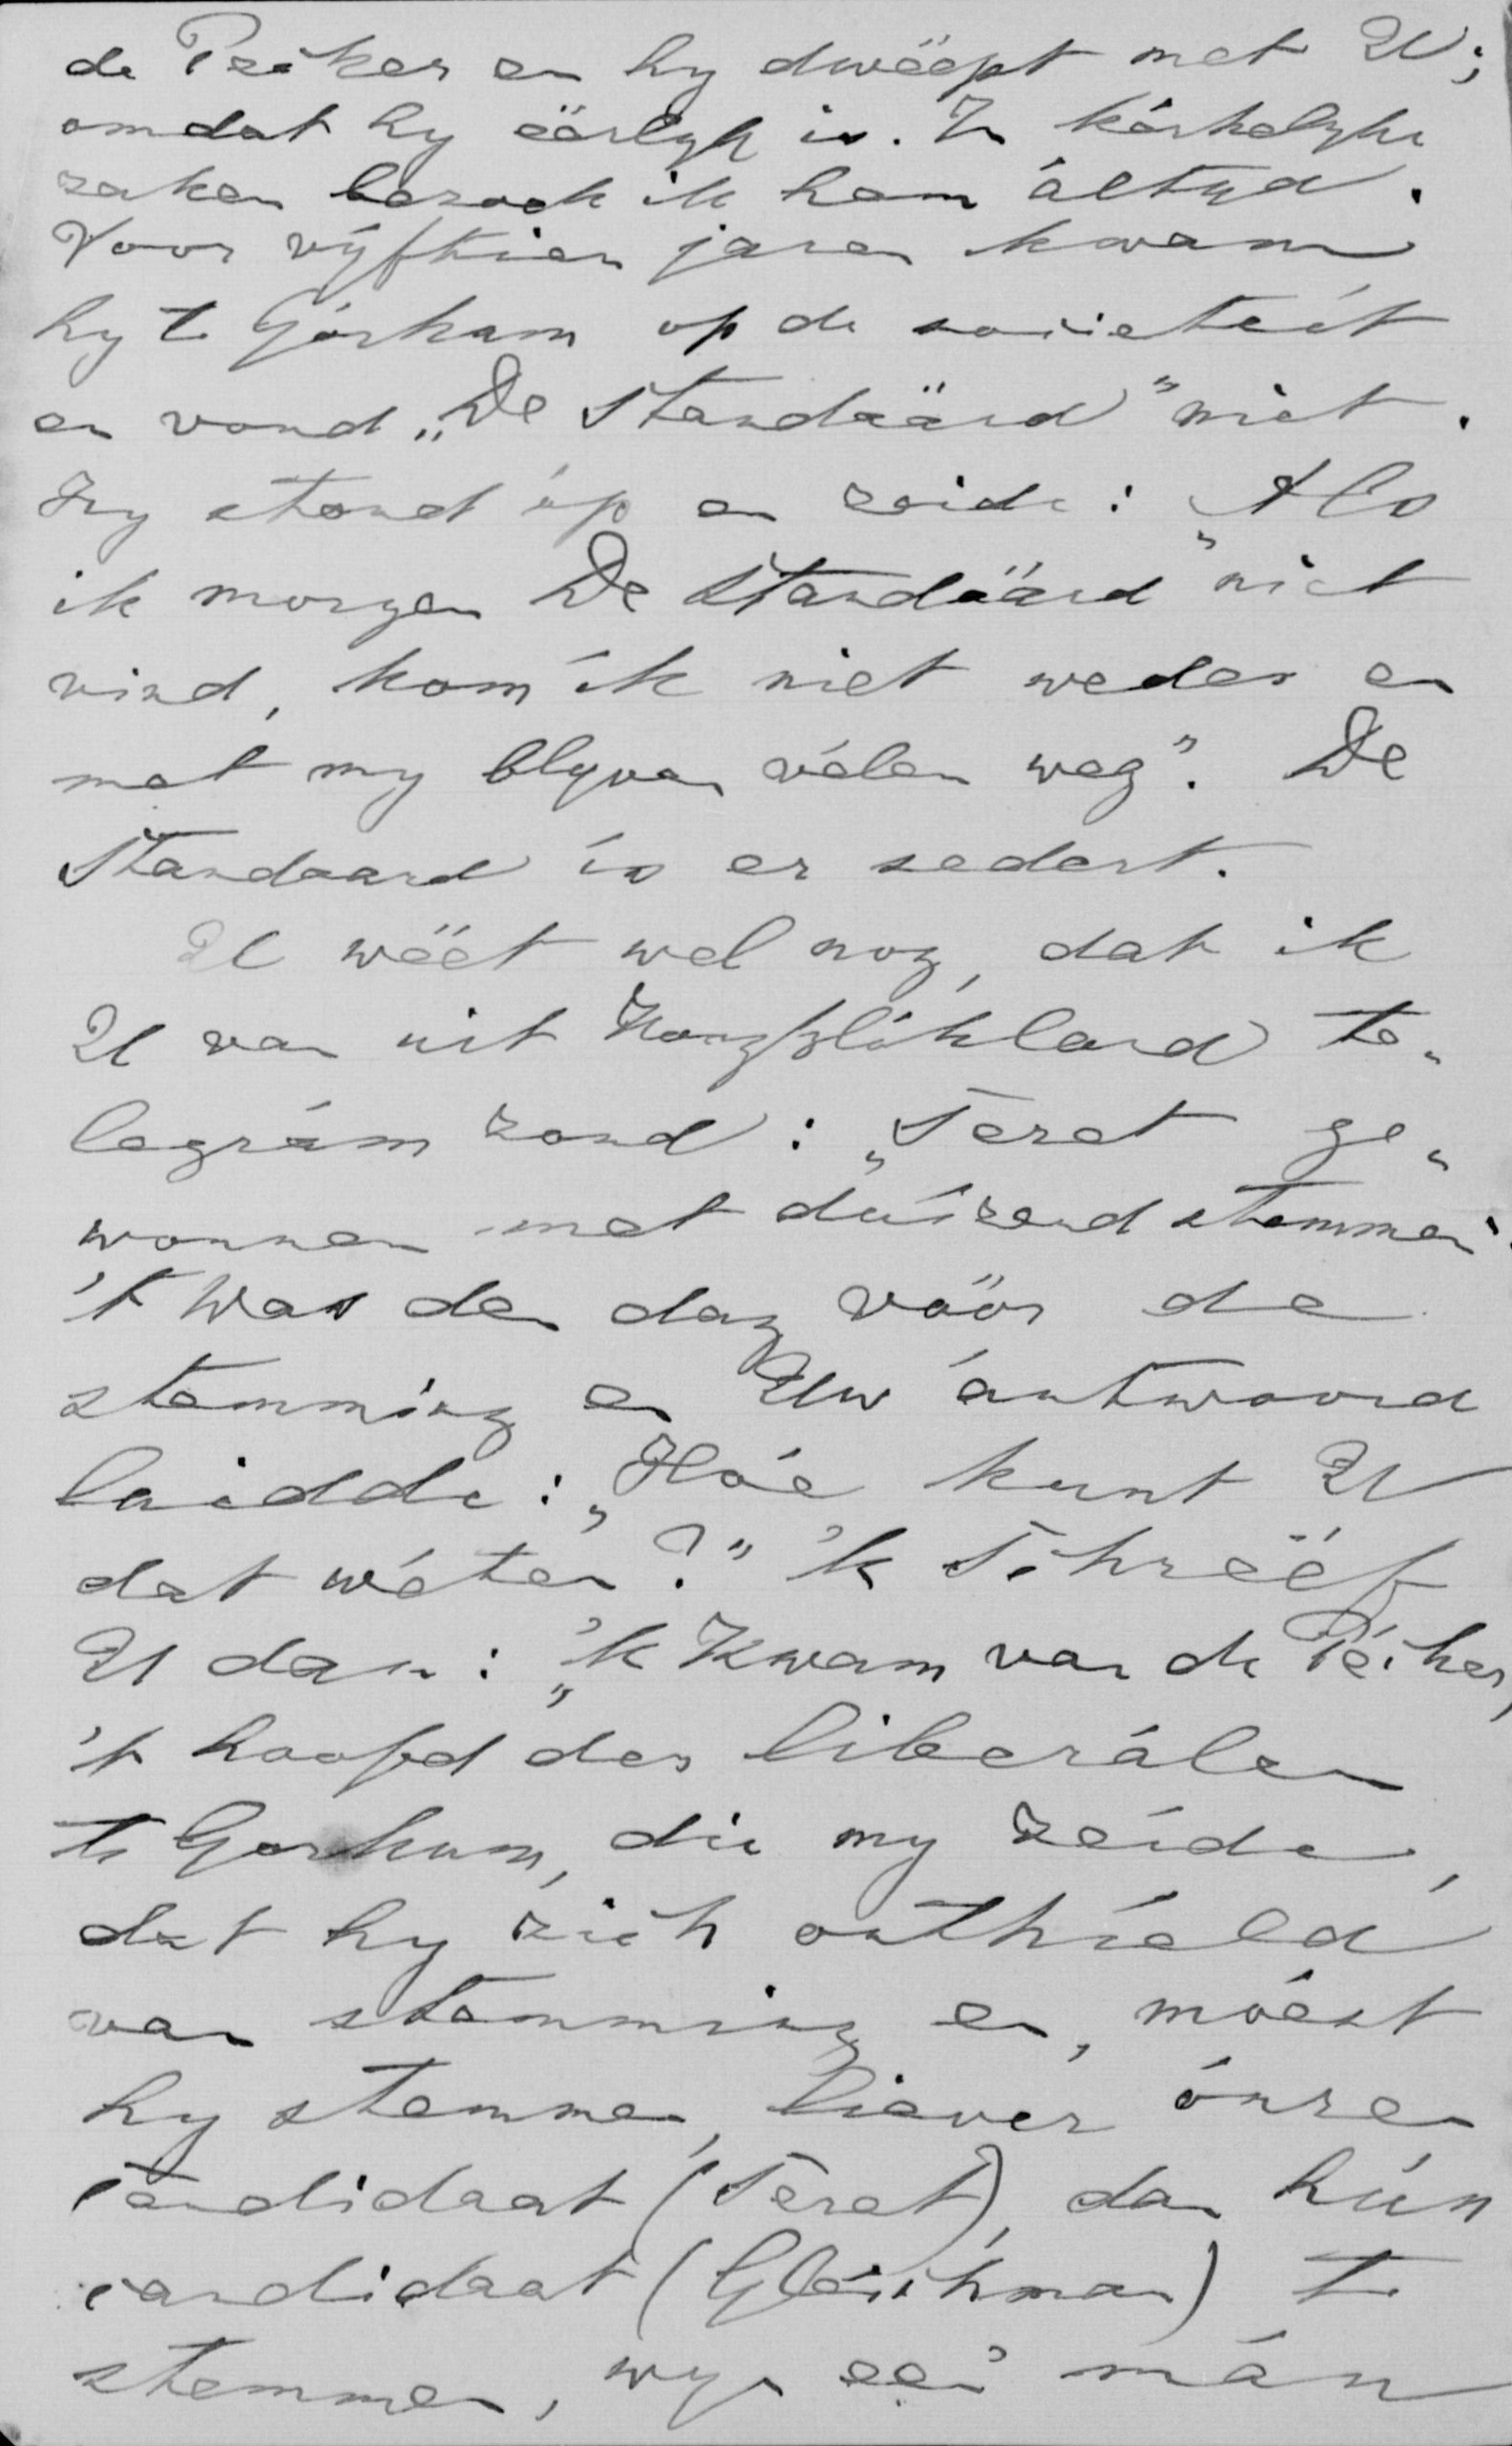 de Péiker en hy dwéépt met U;
omdat hy éérlyk is. In kérkelyke
zaken bezoek ik hem áltyd.
Voor vyftien jaren kwam
hy te Górkum op de societeit
en vond „De Standäärd" niet.
Hy stond óp en zeide: „Als
ik morgen De Standäärd niet
vind, kom ík niet weder en
met my blyven vélen weg". De
Standaard ís er sedert.
U wéét wel nog, dat ik
U van uit Hoogblokland te„
legrám zond: „Seret ge„
wonnen met duízend stemmen".
't Was den dag vóór de
stemming en Uw ántwoord
luidde: „Hóe kunt U
dat wéten?" 'k Schrééf
U dan: „'k Kwam van de Péiker,
't hoofd der liberálen
te Gorkum, die my zeide,
dat hy zich onthield
van stemming en, móest
hy stemmen, liever ónzen
candidaat (Seret), dan hún
candidaat (Gleichman) te
stemmen, wyl een mán